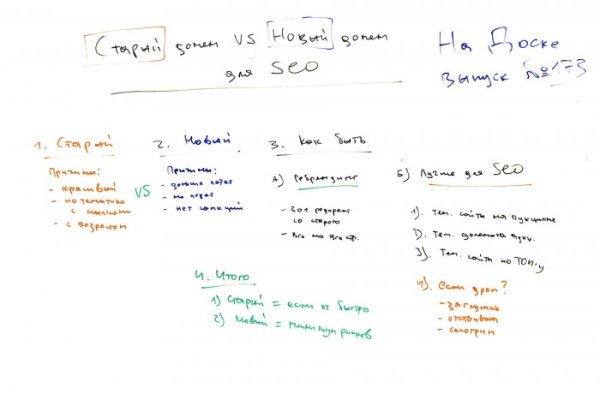 Старый домен VS Новый домен
для SEO
На Доске
выпуск №173
1. Старый
Причины:
- красивый
- по тематике
с ссылками
- с возрастом
VS
2. Новый
Причины:
- дольше
- не
- нет санкций
3. Как быть
А) Ребрендинг
- 301 редирект
со старого
- Все на
Б) Лучше для SEO
1). Тем. сайты на аукционе
2). Тем. домены
3). Тем. сайты по ТОП-у
4). Если дроп?
- заглушка
- отстаивать
- смотрим
4. Итого
1) Старый = если ок быстро
2) Новый = минимум рисков